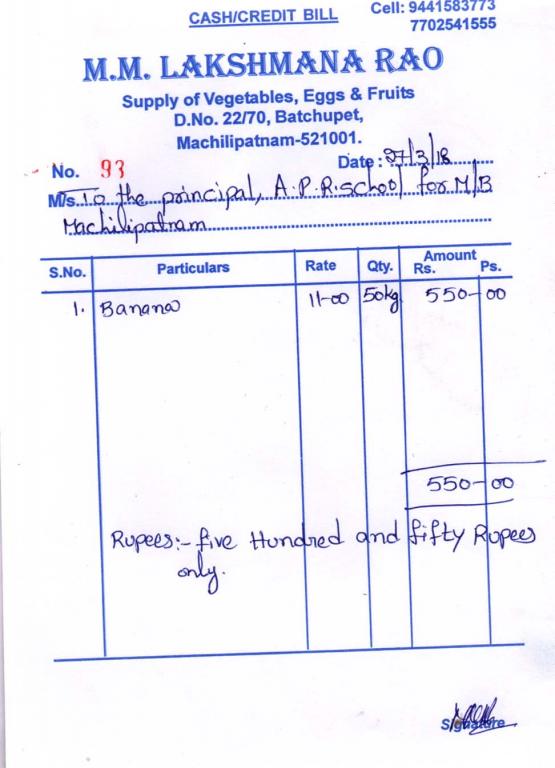 CASH/CREDIT BILL
Cell: 9441583773
7702541555
M.M. LAKSHMANA RAO
Supply of Vegetables, Eggs & Fruits
D.No. 22/70, Batchupet,
Machilipatnam-521001.
No. 93 Date: 27/3/18
M/s. To the principal, A.P.R.school for M/B
Machilipatnam
S.No. Particulars Rate Qty. Amount
Rs. Ps.
1. Banana 11-00 50kg 550-00
550-00
Rupees:- five Hundred and fifty Rupees
only.
Signature